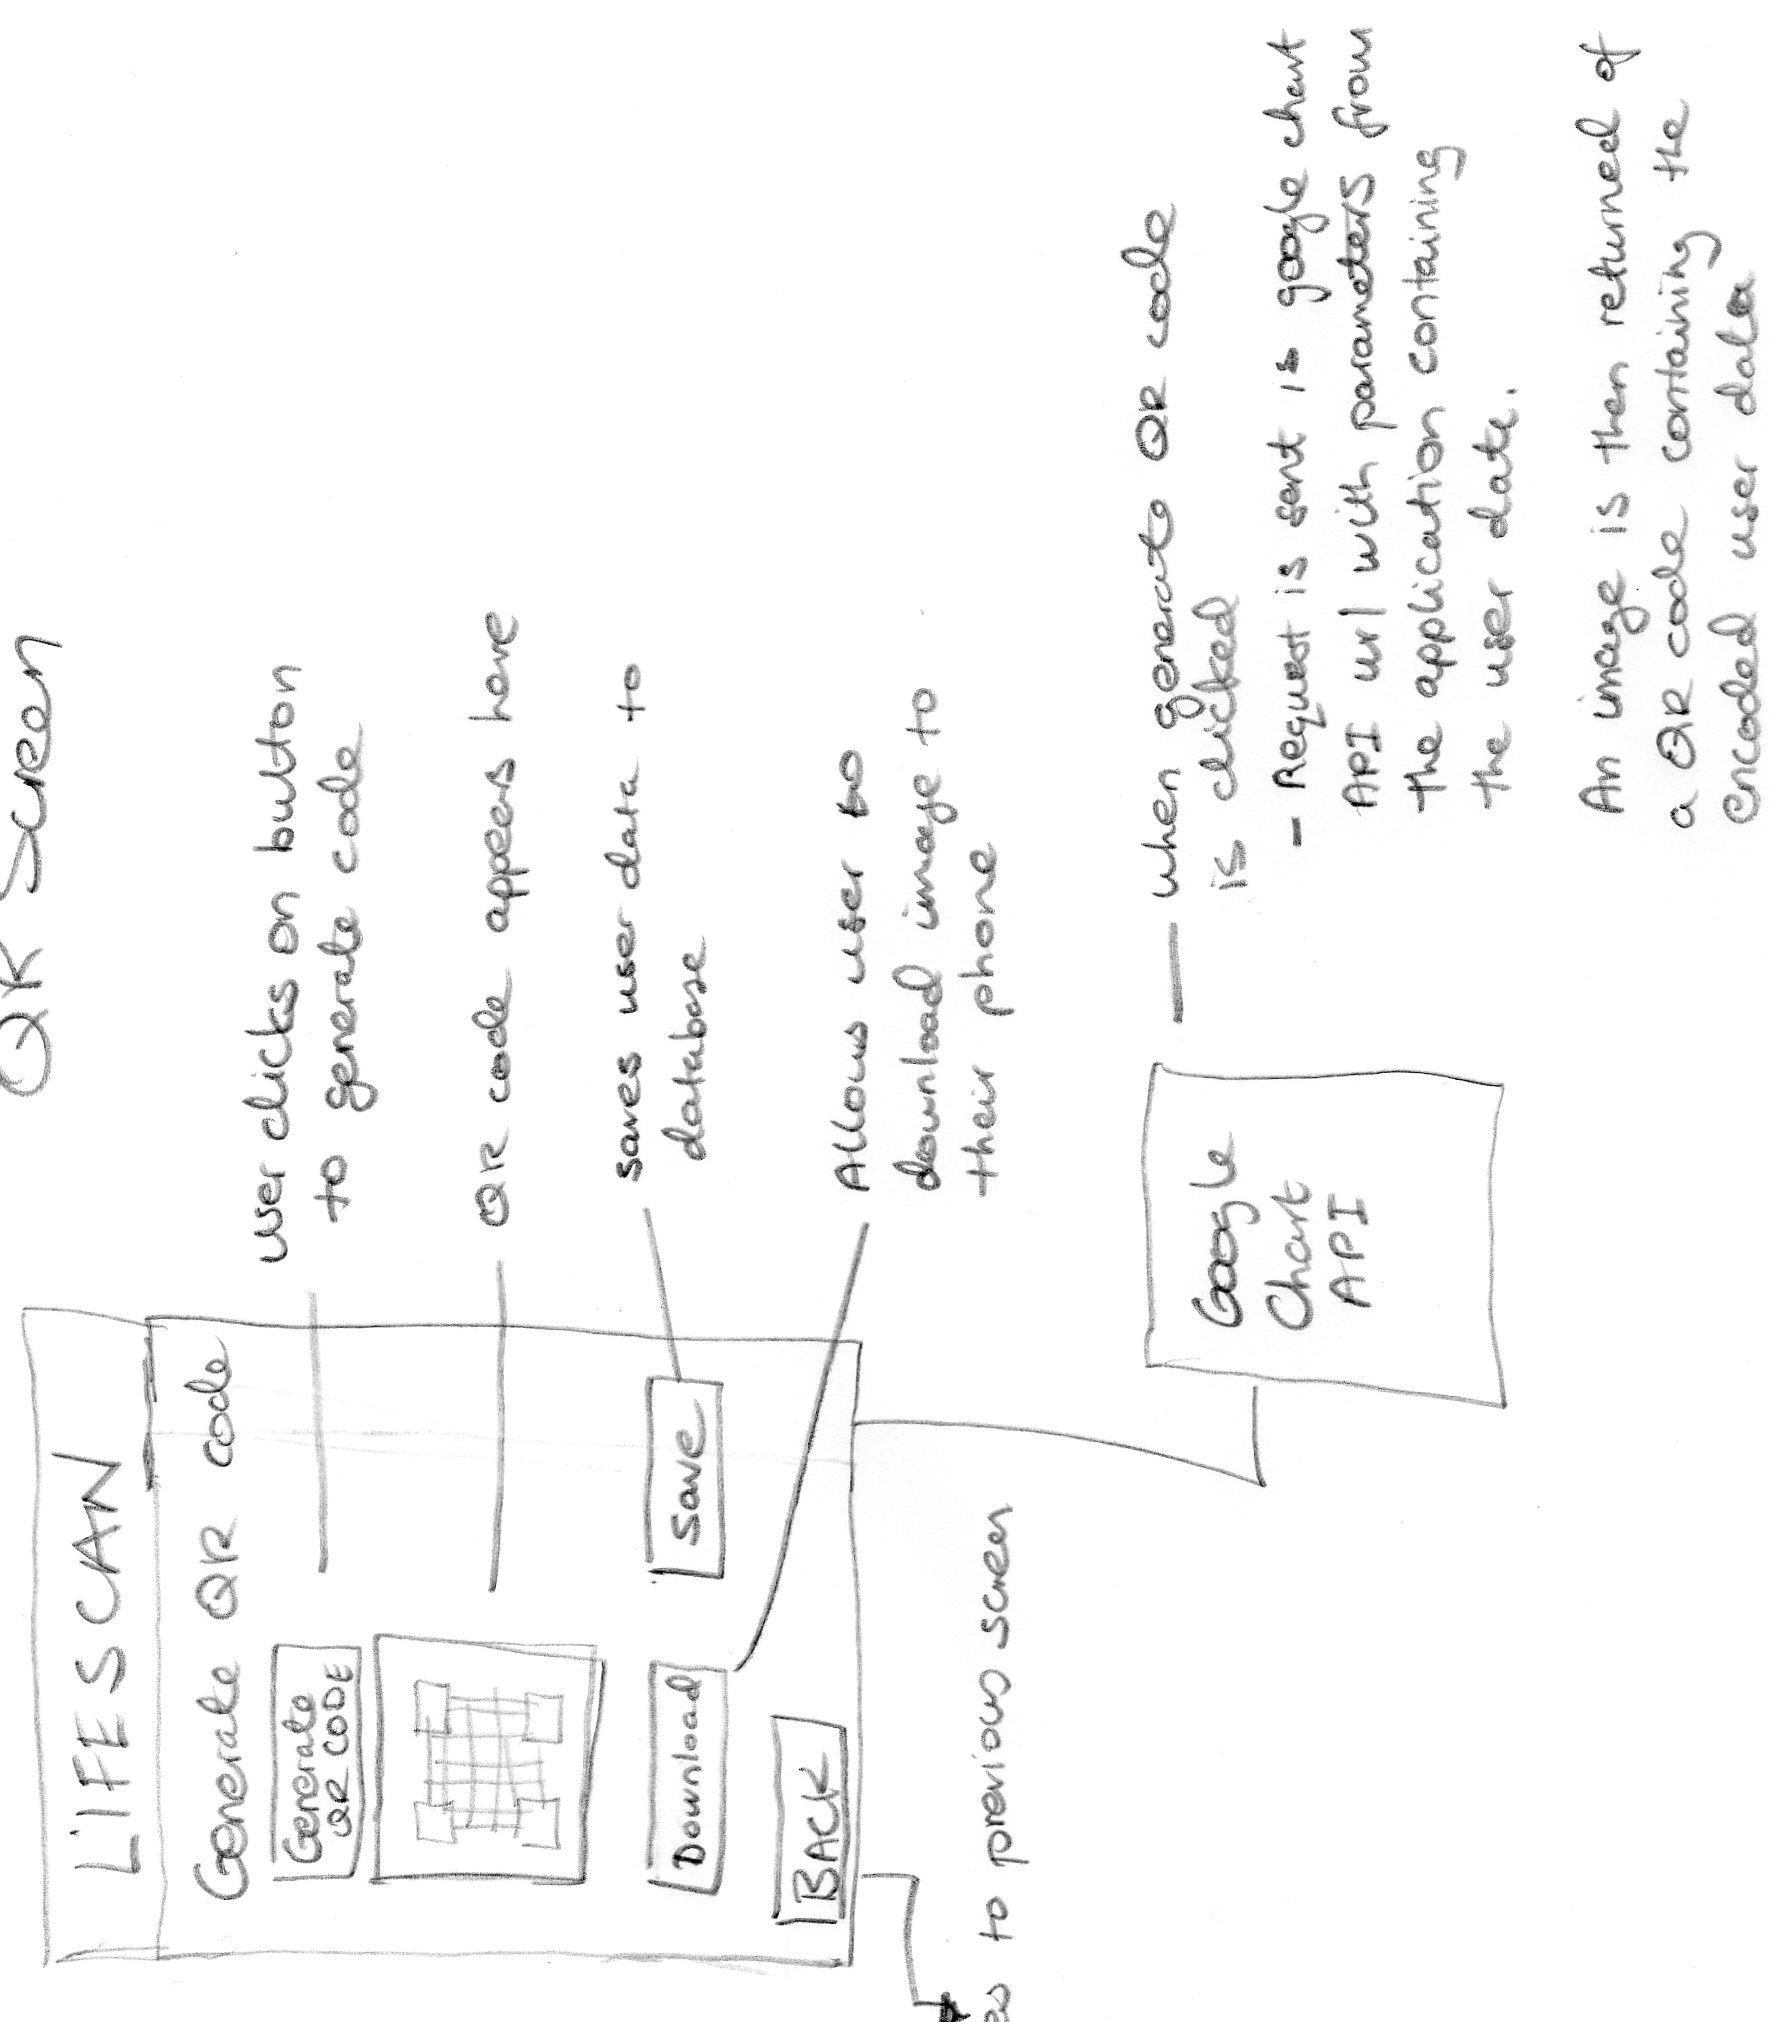 QR Screen
LIFESCAN
Generate QR code
Generate
QR CODE
user clicks on button
to generate code
QR code appers here
Download
Save
saves user data to
database
Allows user to
download image to
their phone
BACK
to previous screen
Google
Chart
API
when generate QR code
is clicked
- Request is sent is google chart
API url with parameters from
the application containing
the user date.
An image is then returned of
a QR code containing the
encoded user data